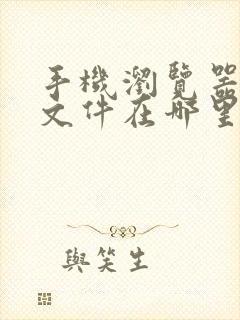 手機瀏覽器
文件在哪里
與笑生